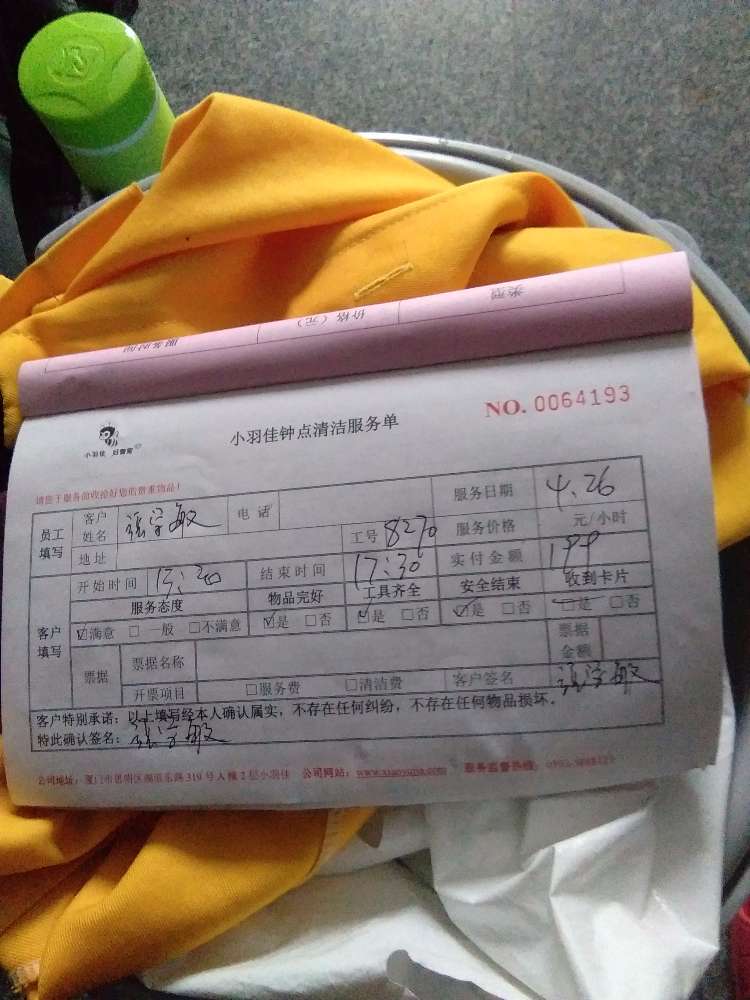 类型
价格（元）
服务时间
NO. 0064193
小羽佳 好管家
小羽佳钟点清洁服务单
请您于服务前收捡好您的贵重物品！
员工填写 客户姓名 张学敏 电话 服务日期 4.26
地址 工号 8270 服务价格 元/小时
客户填写 开始时间 13:30 结束时间 17:30 实付金额 199
服务态度 物品完好 工具齐全 安全结束 收到卡片
☑满意 □一般 □不满意 ☑是 □否 ☑是 □否 ☑是 □否 □是 □否
票据 票据名称 票据金额
开票项目 □服务费 □清洁费 客户签名 张学敏
客户特别承诺：以上填写经本人确认属实，不存在任何纠纷，不存在任何物品损坏。
特此确认签名：张学敏
公司地址：厦门市思明区 319 号 2 层小羽佳 公司网站： 服务监督热线：